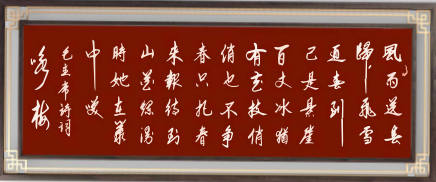 風雨送春
歸飛雪
迎春到
已是懸崖
百丈冰猶
有花枝俏
俏也不争
春只把春
来報待到
山花爛漫
時她在叢
中笑
毛主席诗词
咏梅